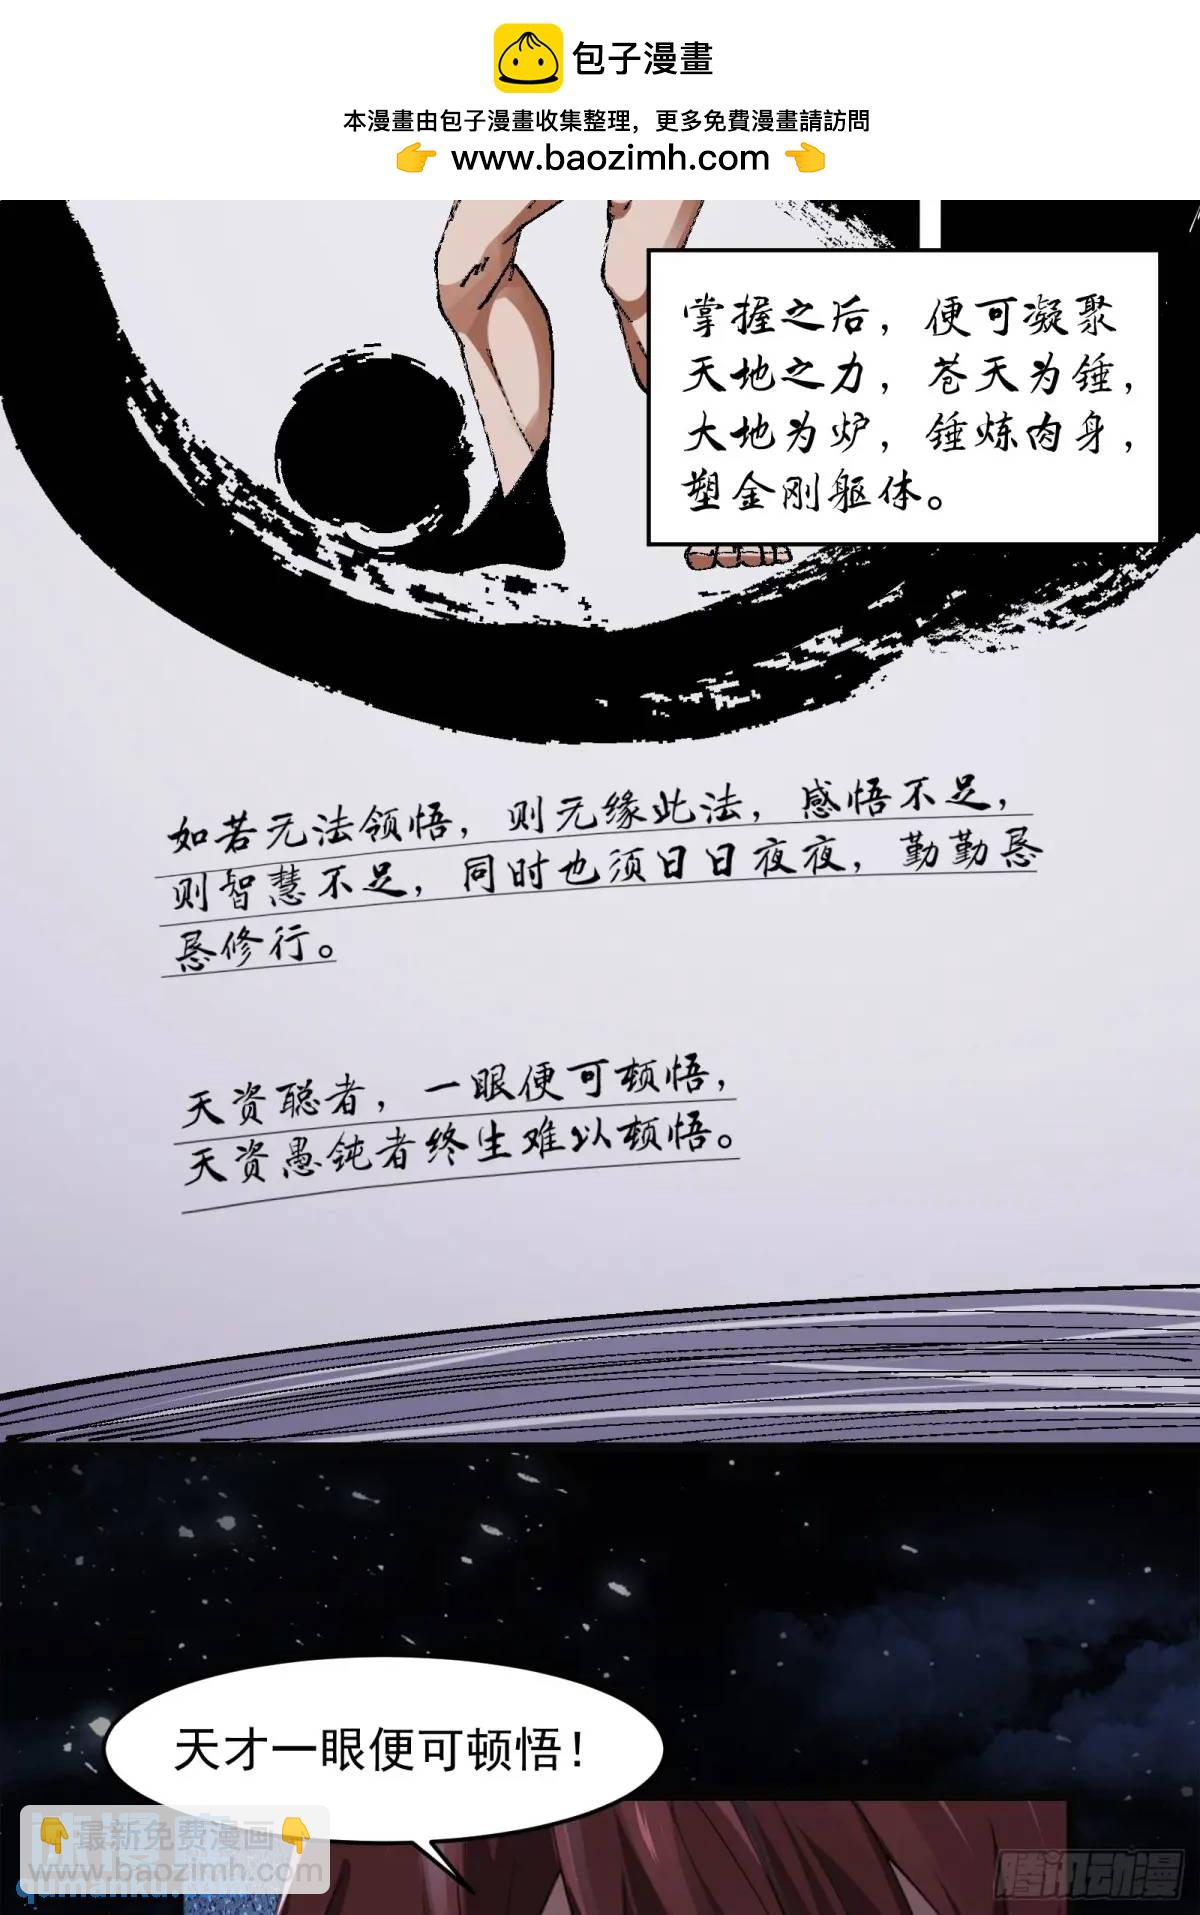 包子漫畫
本漫畫由包子漫畫收集整理，更多免費漫畫請訪問
👉 www.baozimh.com 👈
掌握之后，便可凝聚
天地之力，苍天为锤，
大地为炉，锤炼肉身，
塑金刚躯体。
如若无法领悟，则无缘此法，感悟不足，
则智慧不足，同时也须日日夜夜，勤勤恳
恳修行。
天资聪者，一眼便可顿悟，
天资愚钝者终生难以顿悟。
天才一眼便可顿悟！
👇最新免费漫画👇
www.baozimh.com
腾讯动漫